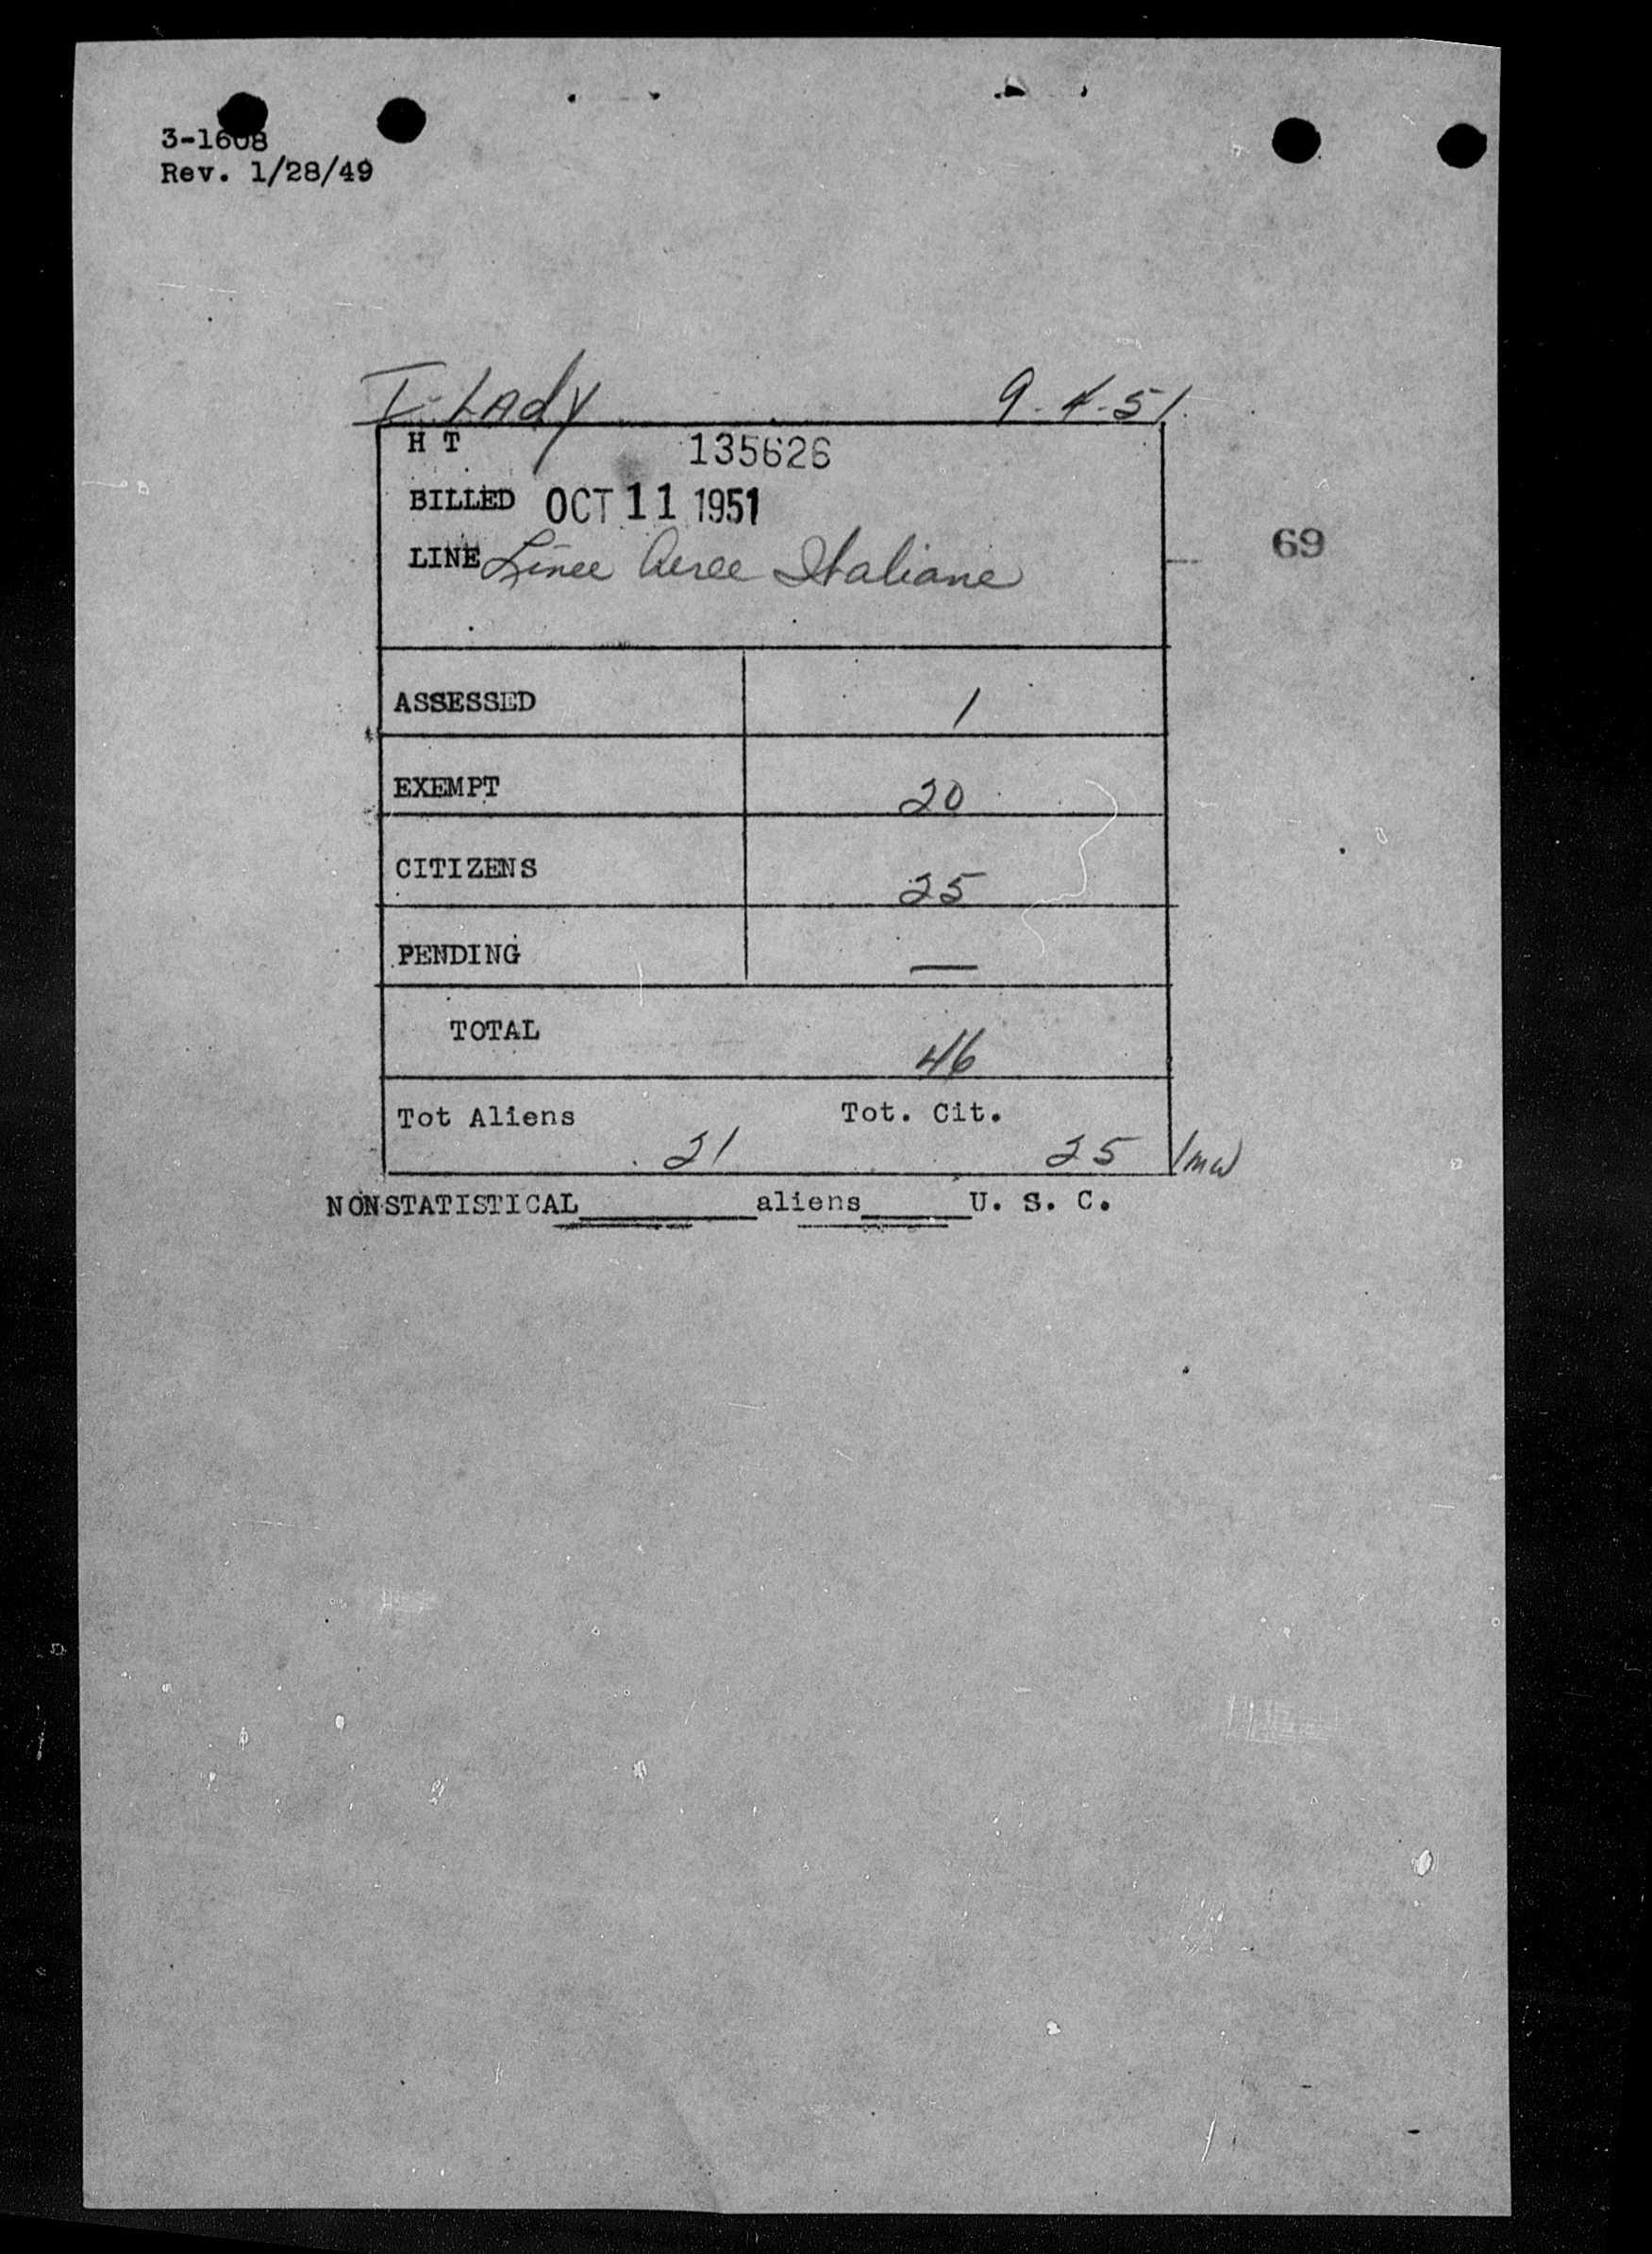 3-1608
Rev. 1/28/49
I-LADY 9-4-51
H T 135626
BILLED OCT 11 1951
LINE Linee Aeree Italiane
69
ASSESSED 1
EXEMPT 20
CITIZENS 25
PENDING —
TOTAL 46
Tot Aliens 21 Tot. Cit. 25
NONSTATISTICAL________aliens_____U. S. C.